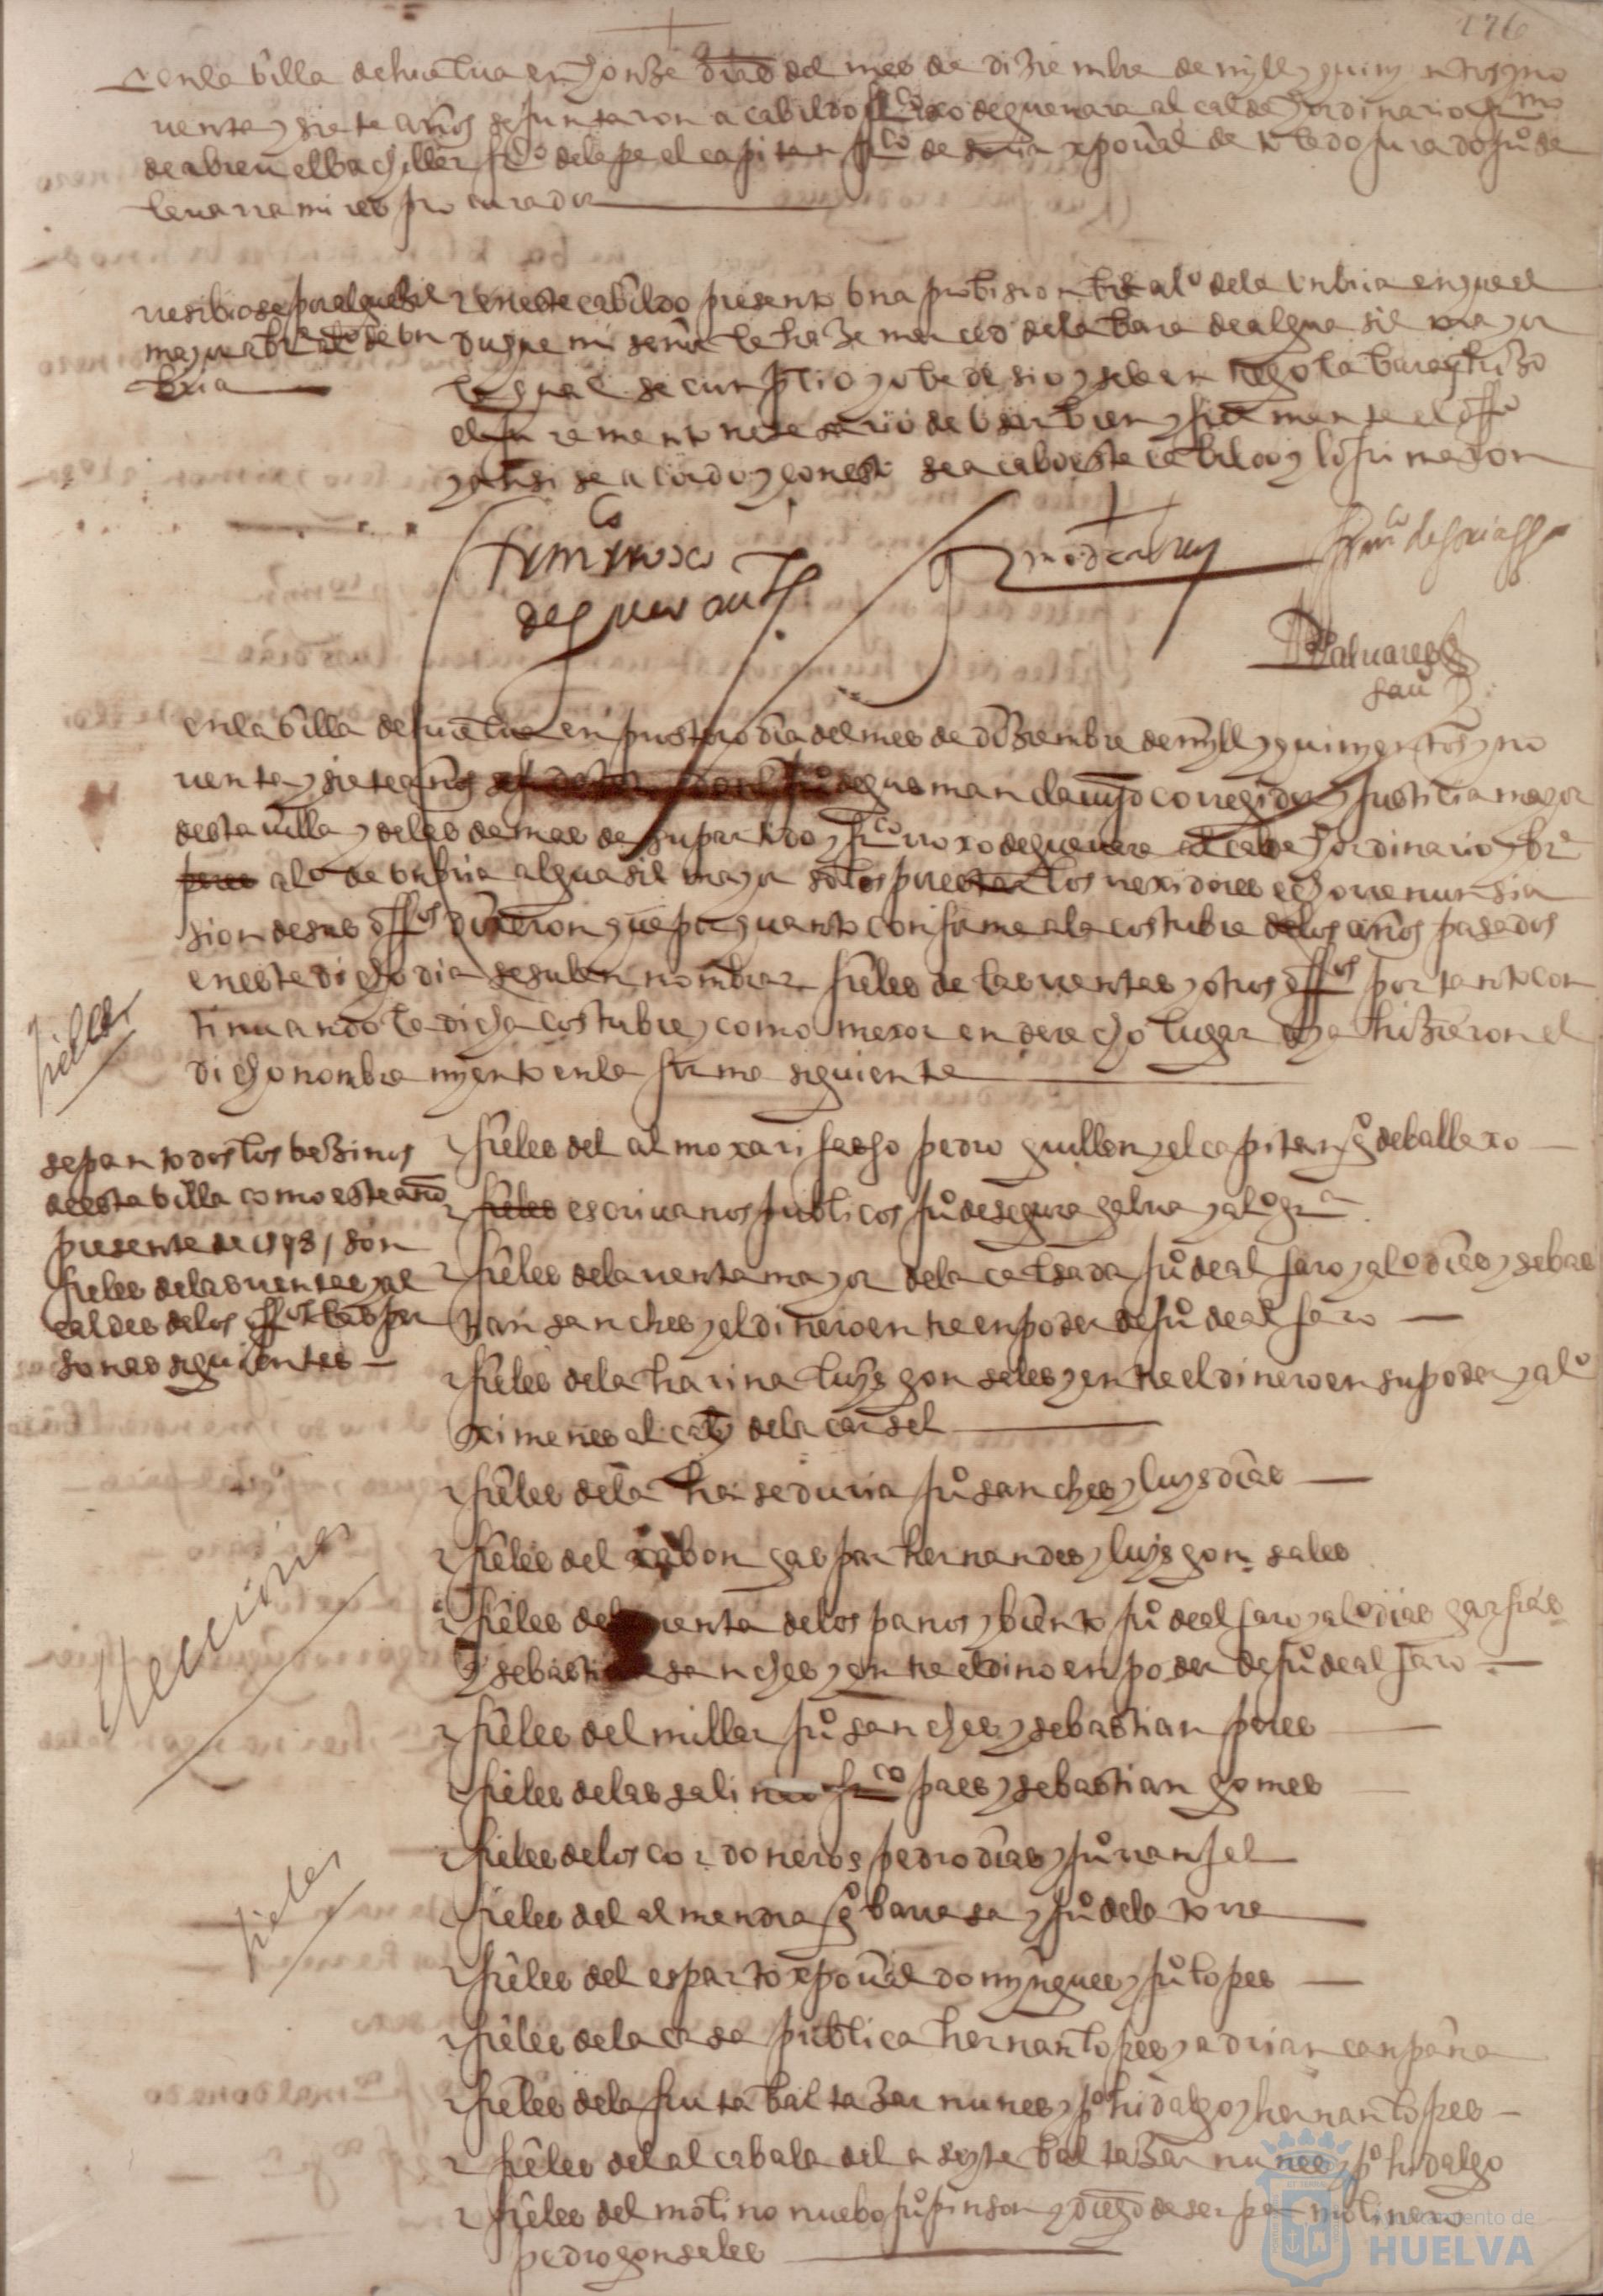 176
en la billa de huelua en honze dias del mes de diziembre de myll y quinyentos y no
uenta y siete años se juntaron a cabildo frco rroxo de guevara alcalde hordinario
de abreu el bachiller de lepe el capitan frco de soria xpoual de toledo jurado juº de
leua rramires procurador
rresibiose por alguasil
mayor a de un
bria
en este cabildo presento una probision alº de la unbria en que el
duque mi señor le haze merced de la bara de alguasil mayor
la qual se cunplio y obedesio y se le entrego la bara y hizo
el juramento nesesario de usar bien y fielmente el offº
y ansi se acordo y con esto se acabo este cabildo y lo firmaron
frco rroxo
de gueuara
de abreu
frco de soria
aluares
en la billa de huelua en postrero dia del mes de diziembre de myll y quinyentos y no
uenta y siete años de gusman clauijo corregidor y justicia mayor
desta uilla y de las demas de su partido y frco rroxo de gueuara alcalde hordinario y
peres alº de unbria alguasil mayor los rrexidores echo rrenunsia
sion de sus offºs dixeron que por quanto conforme a la costubre de los años pasados
en este dicho dia se suelen nombrar fieles de las rrentas y otros offºs por tanto con
tinuando la dicha costubre y como mexor en derecho lugar aya hizieron el
dicho nombramyento en la forma siguiente
fieles
sepan todos los bezinos
desta billa como este año
presente de 1598 son
fieles de las rrentas y al
caldes de los offºs las per
sonas siguientes
fieles del almoxarifasgo pedro guillen y el capitan gº de ballexo
fieles escriuanos publicos juº de segura galua y alº
fieles de la uenta mayor de la calsada juº de alfaro y alº dias y sebas
tian sanches y el dinero entre en poder de juº de alfaro
fieles de la harina luys gonsales y entre el dinero en su poder y alº
ximenes alcayde de la carsel
fieles de la haseduria juº sanches y luys dias
Elecciones
fieles del xabon gaspar hernandes y luys gonsales
fieles de rrenta de los paños y biento juº de alfaro y alº dias garfias
y sebastian sanches y entre el dinero en poder de juº de alfaro
fieles del millar juº sanches y sebastian peres
fieles de las salinas frco paes y sebastian gomes
fieles de los cordoneros pedro dias y juº rranjel
fieles
fieles del almendra gº barrera y juº de la torre
fieles del esparto xpoual domyngues y juº lopes
fieles de la casa publica hernan lopes y adrian canpaña
fieles de la fruta baltazar nunes y pº hidalgo y hernan lopes
fieles del alcabala del aseyte baltazar nunes y pº hidalgo
fieles del molino nuebo juº pinson y diego de serpa molinero
pedro gonsales
Ayuntamiento de
HUELVA